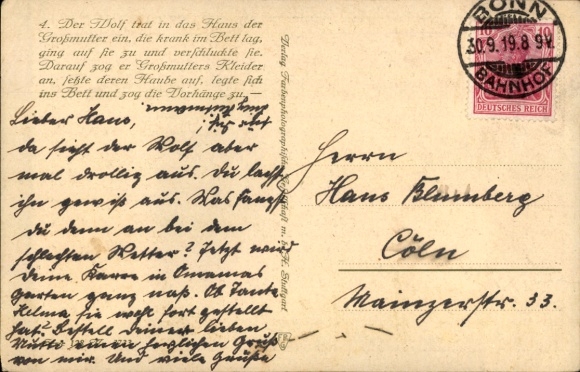 4. Der Wolf trat in das Haus der
Großmutter ein, die krank im Bett lag,
ging auf sie zu und verschluckte sie.
Darauf zog er Großmutters Kleider
an, setzte deren Haube auf, legte sich
ins Bett und zog die Vorhänge zu. —
Lieber Hans,
da sieht der Wolf aber
mal drollig aus. Du lachst
ihn gewiß aus. Was fängst
du denn an bei dem
schlechten Wetter? Jetzt wird
deine Karre in Omamas
Garten ganz naß. Ob Tante
Helma sie wohl fort gestellt
hat? Bestell deiner lieben
Mutti einen herzlichen Gruß
von mir. Und viele Grüße
Verlag Farbenphotographische Gesellschaft m. b. H. Stuttgart
BONN
30.9.19.8-9V.
BAHNHOF
10
10
DEUTSCHES REICH
Herrn
Hans Blumberg
Cöln
Mainzerstr. 33.